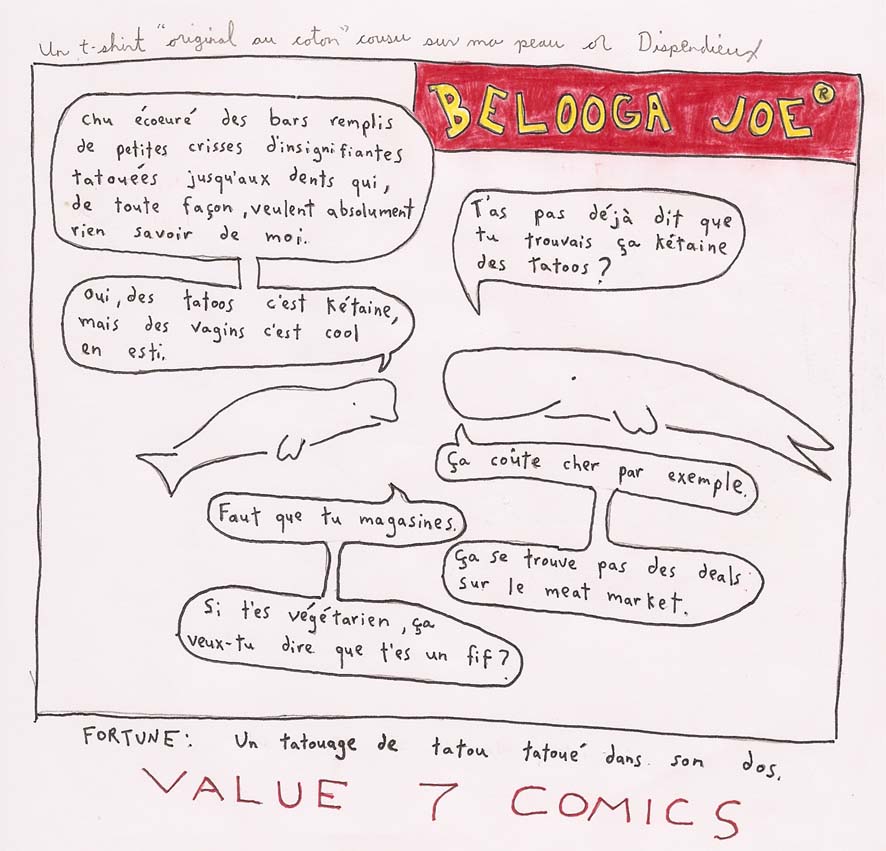 Un t-shirt "original au coton" cousu sur ma peau or Dispendieux
BELOOGA JOE®
Chu écoeuré des bars remplis
de petites crisses d'insignifiantes
tatouées jusqu'aux dents qui,
de toute façon, veulent absolument
rien savoir de moi.
T'as pas déjà dit que
tu trouvais ça kétaine
des tatoos?
Oui, des tatoos c'est kétaine,
mais des vagins c'est cool
en esti.
Ça coûte cher par exemple.
Faut que tu magasines.
Ça se trouve pas des deals
sur le meat market.
Si t'es végétarien, ça
veux-tu dire que t'es un fif?
FORTUNE: Un tatouage de tatou tatoué dans son dos.
VALUE 7 COMICS